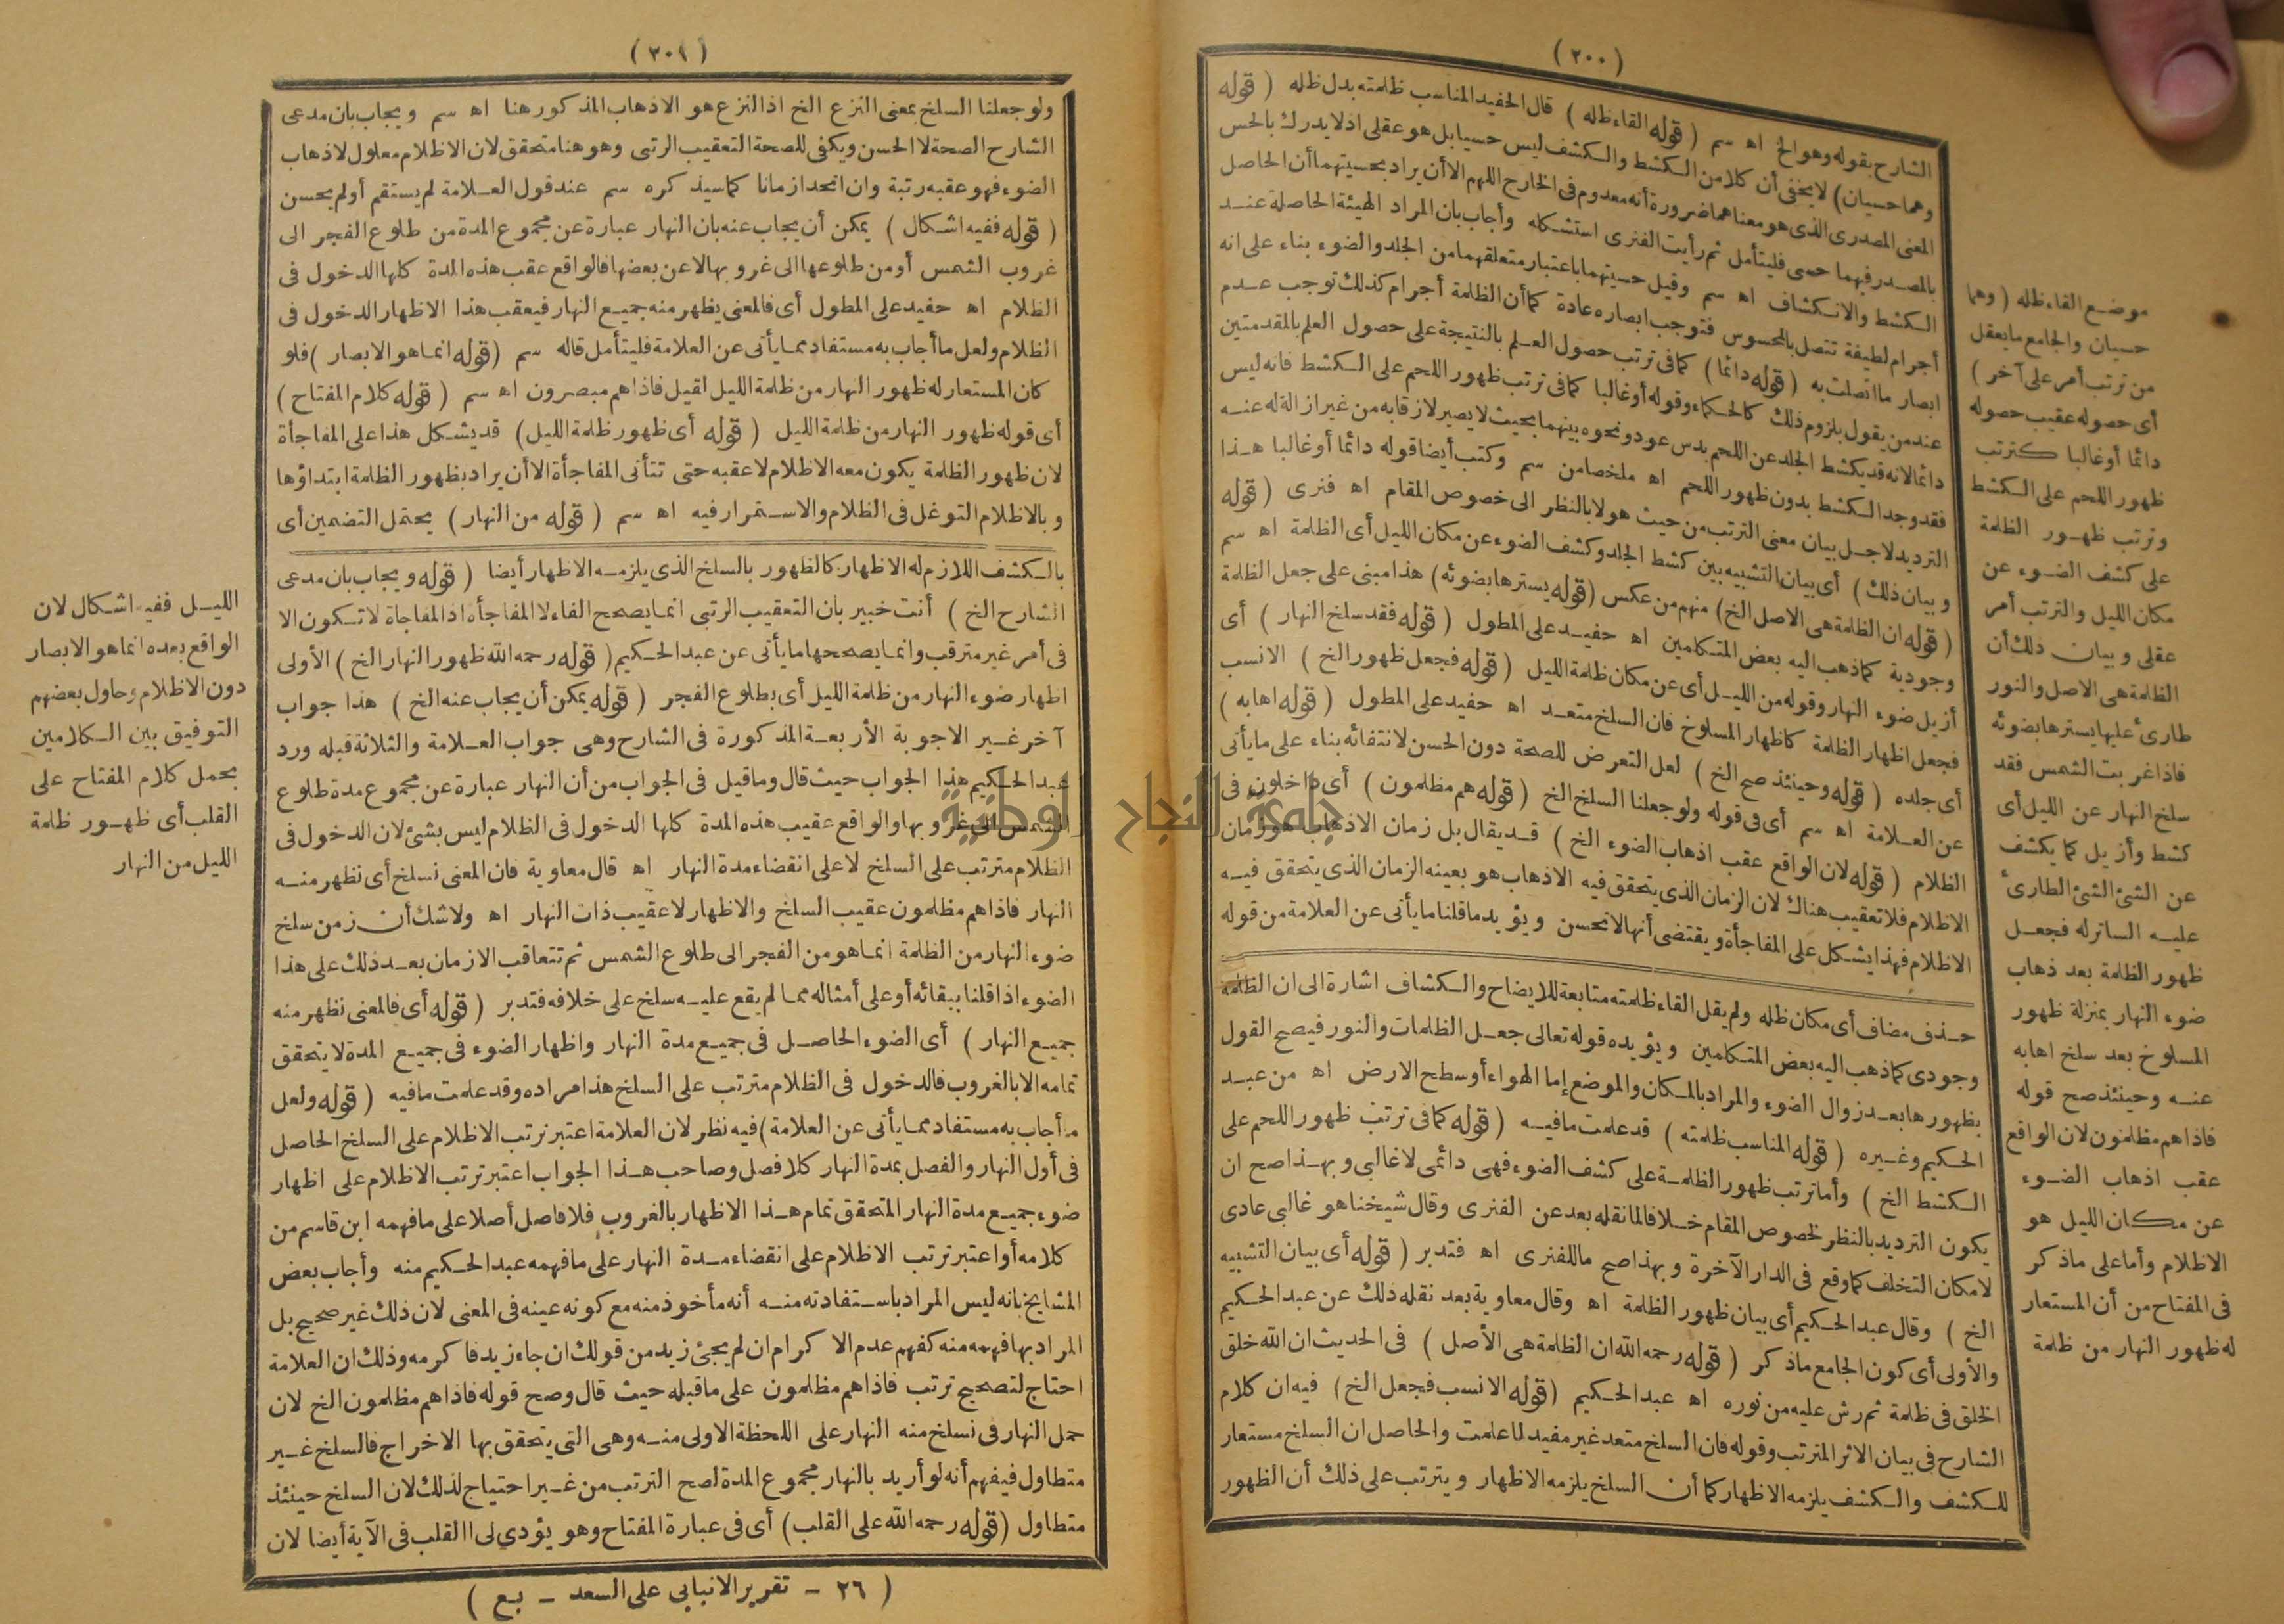 ( ٢٠٠ )
الشارح بقوله وهو الخ اه سم ( قوله القاء ظله ) قال الحفيد المناسب ظلمته بدل ظله ( قوله
وهما حسيان) لا يخفى أن كلا من الكشط والكشف ليس حسيا بل هو عقلى اذ لا يدرك بالحس
المعنى المصدرى الذى هو معناهما ضرورة أنه معدوم فى الخارج اللهم الا أن يراد بحسيتهما أن الحاصل
بالمصدر فيهما حسى فليتأمل ثم رأيت الفنرى استشكله وأجاب بان المراد الهيئة الحاصلة عند
الكشط والانكشاف اه سم وقيل حسيتهما باعتبار متعلقهما من الجلد والضوء بناء على انه
أجرام لطيفة تتصل بالمحسوس فتوجب ابصاره عادة كما أن الظلمة أجرام كذلك توجب عدم
ابصار ما اتصلت به ( قوله دائما ) كما فى ترتب حصول العلم بالنتيجة على حصول العلم بالمقدمتين
عند من يقول بلزوم ذلك كالحكماء وقوله أو غالبا كما فى ترتب ظهور اللحم على الكشط فانه ليس
دائما لانه قد يكشط الجلد عن اللحم بدس عود ونحوه بينهما بحيث لا يصير لازقا به من غير ازالة له عنه
فقد وجد الكشط بدون ظهور اللحم اه ملخصا من سم وكتب أيضا قوله دائما أو غالبا هذا
الترديد لاجل بيان معنى الترتب من حيث هو لا بالنظر الى خصوص المقام اه فنرى ( قوله
وبيان ذلك ) أى بيان التشبيه بين كشط الجلد وكشف الضوء عن مكان الليل أى الظلمة اه سم
( قوله ان الظلمة هى الاصل الخ) منهم من عكس (قوله يسترها بضوئه) هذا مبنى على جعل الظلمة
وجودية كما ذهب اليه بعض المتكلمين اه حفيد على المطول ( قوله فقد سلخ النهار ) أى
أزيل ضوء النهار وقوله من الليل أى عن مكان ظلمة الليل ( قوله فجعل ظهور الخ ) الانسب
فجعل اظهار الظلمة كاظهار المسلوخ فان السلخ متعد اه حفيد على المطول ( قوله اهابه )
أى جلده ( قوله وحينئذ صح الخ ) لعل التعرض للصحة دون الحسن لانتفائه بناء على ما يأتى
عن العلامة اه سم أى فى قوله ولو جعلنا السلخ الخ ( قوله هم مظلمون ) أى داخلون فى
الظلام ( قوله لان الواقع عقب اذهاب الضوء الخ ) قد يقال بل زمان الاذهاب هو زمان
الاظلام فلا تعقيب هناك لان الزمان الذى يتحقق فيه الاذهاب هو بعينه الزمان الذى يتحقق فيه
الاظلام فهذا يشكل على المفاجأة ويقتضى أنها لا تحسن ويؤيد ما قلنا ما يأتى عن العلامة من قوله
حذف مضاف أى مكان ظله ولم يقل القاء ظلمته متابعة للايضاح والكشاف اشارة الى ان الظلمة
وجودى كما ذهب اليه بعض المتكلمين ويؤيده قوله تعالى جعل الظلمات والنور فيصح القول
بظهورها بعد زوال الضوء والمراد بالمكان والموضع إما الهواء أو سطح الارض اه من عبد
الحكيم وغيره ( قوله المناسب ظلمته ) قد علمت ما فيه ( قوله كما فى ترتب ظهور اللحم على
الكشط الخ ) وأما ترتب ظهور الظلمة على كشف الضوء فهى دائمى لا غالبى وبهذا صح ان
يكون الترديد بالنظر لخصوص المقام خلافا لما نقله بعد عن الفنرى وقال شيخنا هو غالبى عادى
لامكان التخلف كما وقع فى الدار الآخرة وبهذا صح ما للفنرى اه فتدبر ( قوله أى بيان التشبيه
الخ ) وقال عبد الحكيم أى بيان ظهور الظلمة اه وقال معاوية بعد نقله ذلك عن عبد الحكيم
والأولى أى كون الجامع ماذكر ( قوله رحمه الله ان الظلمة هى الأصل ) فى الحديث ان الله خلق
الخلق فى ظلمة ثم رش عليه من نوره اه عبد الحكيم (قوله الانسب فجعل الخ) فيه ان كلام
الشارح فى بيان الاثر المترتب وقوله فان السلخ متعد غير مفيد لما علمت والحاصل ان السلخ مستعار
للكشف والكشف يلزمه الاظهار كما أن السلخ يلزمه الاظهار ويترتب على ذلك أن الظهور
موضع القاء ظله ( وهما
حسيان والجامع ما يعقل
من ترتب أمر على آخر )
أى حصوله عقيب حصوله
دائما أو غالبا كترتب
ظهور اللحم على الكشط
وترتب ظهور الظلمة
على كشف الضوء عن
مكان الليل والترتب أمر
عقلى وبيان ذلك أن
الظلمة هى الاصل والنور
طارئ عليها يسترها بضوئه
فاذا غربت الشمس فقد
سلخ النهار عن الليل أى
كشط وأزيل كما يكشف
عن الشئ الشئ الطارئ
عليه الساتر له فجعل
ظهور الظلمة بعد ذهاب
ضوء النهار بمنزلة ظهور
المسلوخ بعد سلخ اهابه
عنه وحينئذ صح قوله
فاذا هم مظلمون لان الواقع
عقب اذهاب الضوء
عن مكان الليل هو
الاظلام وأما على ماذكر
فى المفتاح من أن المستعار
له ظهور النهار من ظلمة
( ٢٠١ )
ولو جعلنا السلخ بمعنى النزع الخ اذ النزع هو الاذهاب المذكور هنا اه سم ويجاب بان مدعى
الشارح الصحة لا الحسن ويكفى للصحة التعقيب الرتبى وهو هنا متحقق لان الاظلام معلول لاذهاب
الضوء فهو عقبه رتبة وان اتحدا زمانا كما سيذكره سم عند قول العلامة لم يستقم أو لم يحسن
( قوله ففيه اشكال ) يمكن أن يجاب عنه بان النهار عبارة عن مجموع المدة من طلوع الفجر الى
غروب الشمس أو من طلوعها الى غروبها لا عن بعضها فالواقع عقب هذه المدة كلها الدخول فى
الظلام اه حفيد على المطول أى فالمعنى يظهر منه جميع النهار فيعقب هذا الاظهار الدخول فى
الظلام ولعل ما أجاب به مستفاد مما يأتى عن العلامة فليتأمل قاله سم (قوله انما هو الابصار ) فلو
كان المستعار له ظهور النهار من ظلمة الليل لقيل فاذا هم مبصرون اه سم ( قوله كلام المفتاح )
أى قوله ظهور النهار من ظلمة الليل ( قوله أى ظهور ظلمة الليل) قد يشكل هذا على المفاجأة
لان ظهور الظلمة يكون معه الاظلام لا عقبه حتى تتأتى المفاجأة الا أن يراد بظهور الظلمة ابتداؤها
وبالاظلام التوغل فى الظلام والاستمرار فيه اه سم ( قوله من النهار ) يحتمل التضمين أى
بالكشف اللازم له الاظهار كالظهور بالسلخ الذى يلزمه الاظهار أيضا ( قوله ويجاب بان مدعى
الشارح الخ ) أنت خبير بان التعقيب الرتبى انما يصحح الفاء لا المفاجأة اذ المفاجاة لا تكون الا
فى أمر غير مترقب وانما يصححها ما يأتى عن عبد الحكيم( قوله رحمه الله ظهور النهار الخ ) الأولى
اظهار ضوء النهار من ظلمة الليل أى بطلوع الفجر ( قوله يمكن أن يجاب عنه الخ ) هذا جواب
آخر غير الاجوبة الأربعة المذكورة فى الشارح وهى جواب العلامة والثلاثة قبله ورد
عبد الحكيم هذا الجواب حيث قال وما قيل فى الجواب من أن النهار عبارة عن مجموع مدة طلوع
الشمس الى غروبها والواقع عقيب هذه المدة كلها الدخول فى الظلام ليس بشئ لان الدخول فى
الظلام مترتب على السلخ لا على انقضاء مدة النهار اه قال معاوية فان المعنى نسلخ أى نظهر منه
النهار فاذا هم مظلمون عقيب السلخ والاظهار لا عقيب ذات النهار اه ولا شك أن زمن سلخ
ضوء النهار من الظلمة انما هو من الفجر الى طلوع الشمس ثم تتعاقب الازمان بعد ذلك على هذا
الضوء اذا قلنا ببقائه أو على أمثاله مما لم يقع عليه سلخ على خلافه فتدبر ( قوله أى فالمعنى نظهر منه
جميع النهار ) أى الضوء الحاصل فى جميع مدة النهار واظهار الضوء فى جميع المدة لا يتحقق
تمامه الا بالغروب فالدخول فى الظلام مترتب على السلخ هذا مراده وقد علمت ما فيه ( قوله ولعل
ما أجاب به مستفاد مما يأتى عن العلامة) فيه نظر لان العلامة اعتبر ترتب الاظلام على السلخ الحاصل
فى أول النهار والفصل بمدة النهار كلا فصل وصاحب هذا الجواب اعتبر ترتب الاظلام على اظهار
ضوء جميع مدة النهار المتحقق تمام هذا الاظهار بالغروب فلا فاصل أصلا على ما فهمه ابن قاسم من
كلامه أو اعتبر ترتب الاظلام على انقضاء مدة النهار على ما فهمه عبد الحكيم منه وأجاب بعض
المشايخ بانه ليس المراد باستفادته منه أنه مأخوذ منه مع كونه عينه فى المعنى لان ذلك غير صحيح بل
المراد بها فهمه منه كفهم عدم الاكرام ان لم يجئ زيد من قولك ان جاء زيد فاكرمه وذلك ان العلامة
احتاج لتصحيح ترتب فاذا هم مظلمون على ما قبله حيث قال وصح قوله فاذا هم مظلمون الخ لان
حمل النهار فى نسلخ منه النهار على اللحظة الاولى منه وهى التى يتحقق بها الاخراج فالسلخ غير
متطاول فيفهم أنه لو أريد بالنهار مجموع المدة لصح الترتب من غير احتياج لذلك لان السلخ حينئذ
متطاول (قوله رحمه الله على القلب) أى فى عبارة المفتاح وهو يؤدي لى القلب فى الآية أيضا لان
الليل ففيه اشكال لان
الواقع بعده انما هو الابصار
دون الاظلام وحاول بعضهم
التوفيق بين الكلامين
بحمل كلام المفتاح على
القلب أى ظهور ظلمة
الليل من النهار
( ٢٦ - تقرير الانبابي على السعد - بع )
جامعة النجاح الوطنية